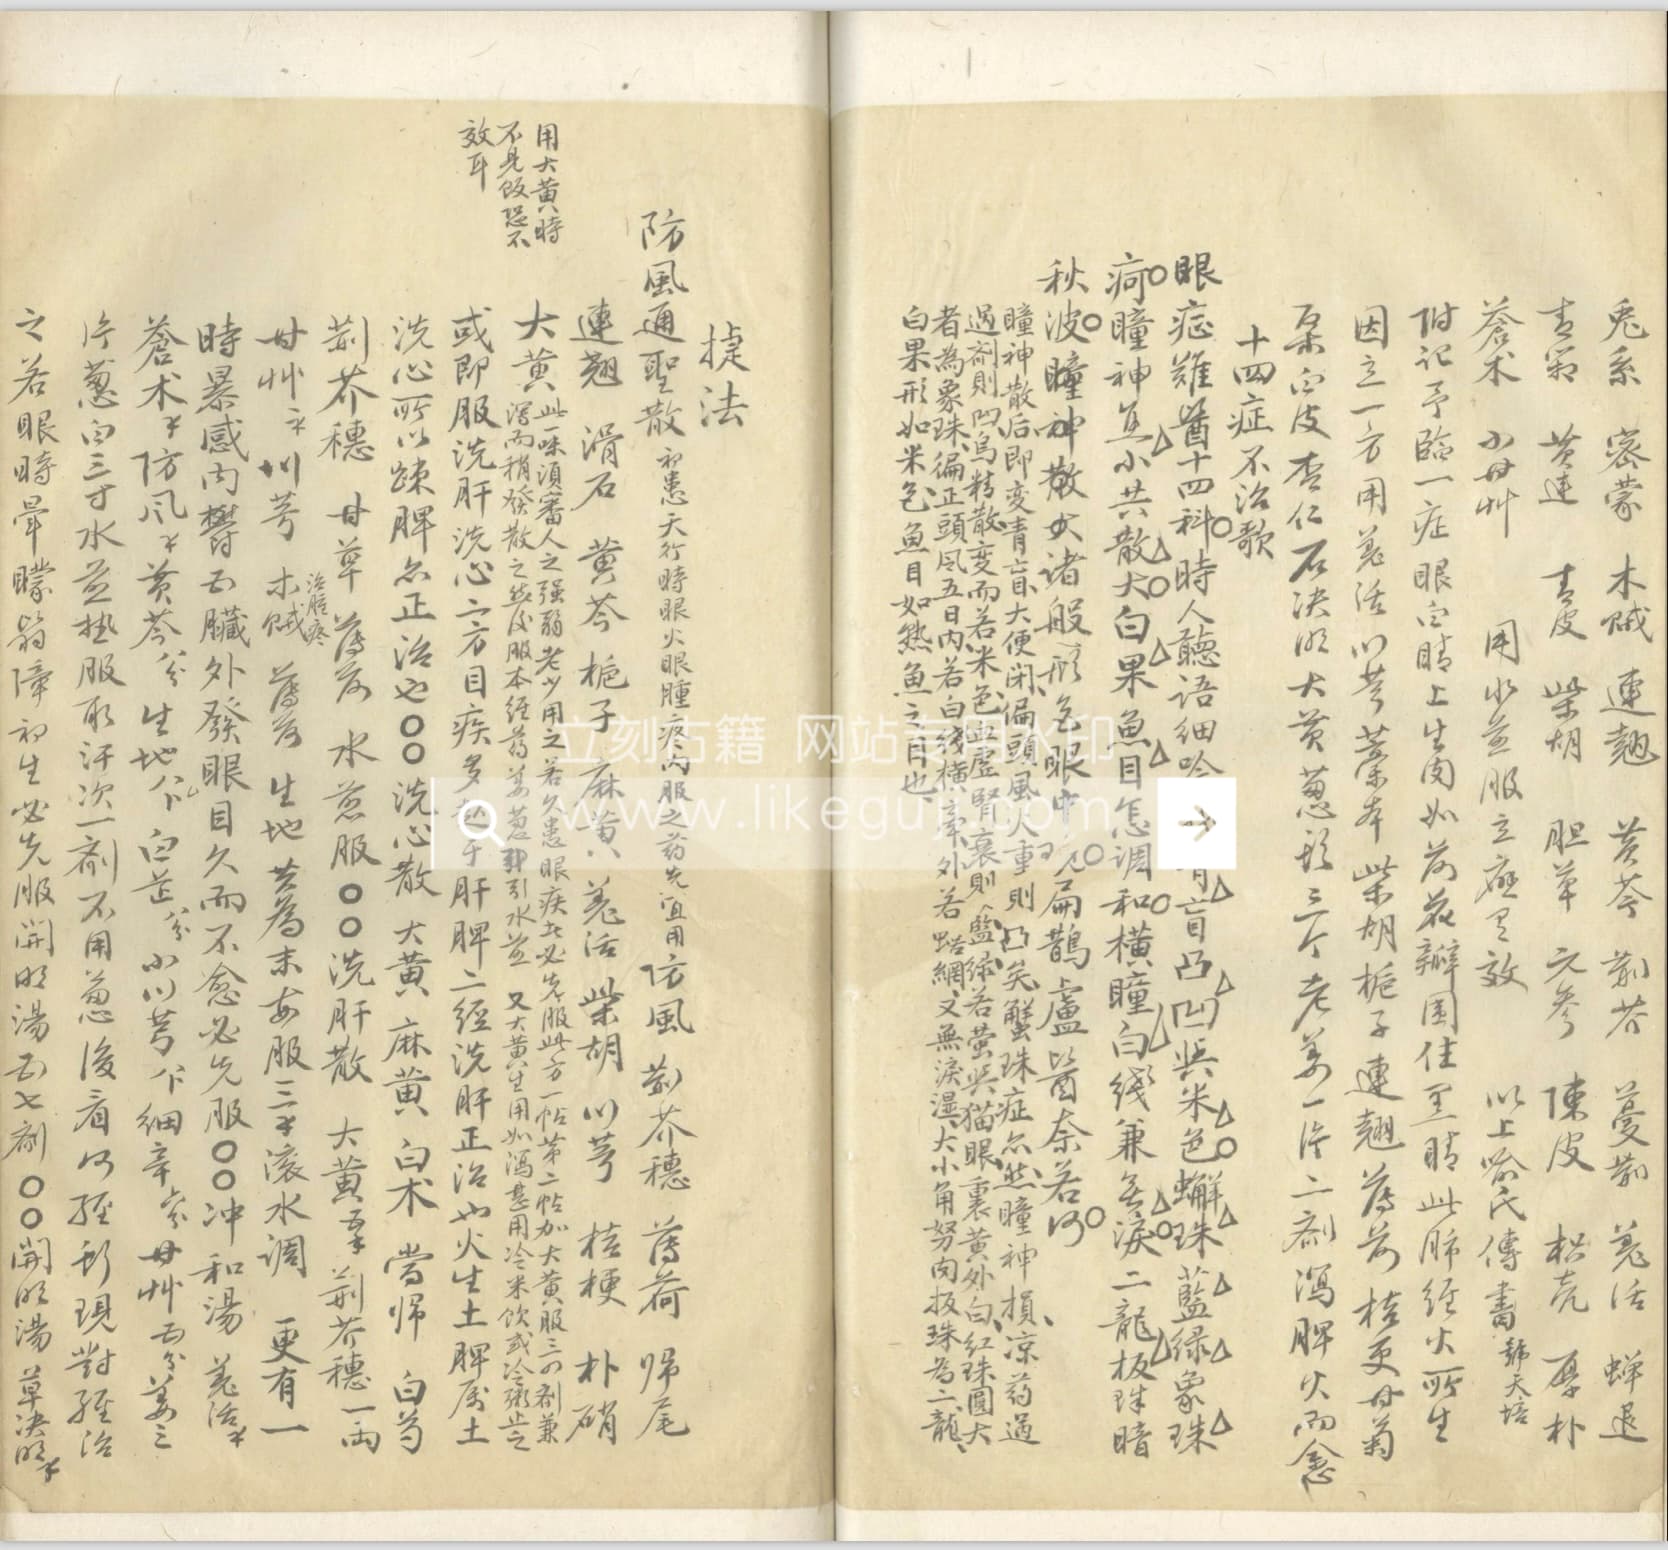 兎糸 密蒙 木賊 連翹 黄芩 荆芥 蔓荆 羗活 蝉退
青箱 黄連 青皮 柴胡 胆草 元参 陳皮 枳壳 厚朴
蒼术 小甘艸 用水煎服立應見效 以上喻氏傳書 號天培
附记予臨一症眼白睛上生肉如荷花瓣围住黑睛此肺经火所生
因立一方用羗活川芎藁本柴胡栀子連翹薄荷桔更甘菊
桑白皮杏仁石决明大黄葱頭三个老姜一片二剂瀉脾火而愈
十四症不治歌
眼症難醫十四科時人聽语细吟 青盲凸凹與米色蠏珠藍緑象珠
疴瞳神真小共散大白果魚目怎调和横瞳白綫兼無淚二龍板珠暗
秋波瞳神散大诸般形色眼中见扁鵲盧醫奈若何
瞳神散后即变青盲大便闭偏頭風火重則凸矣蟹珠症亦然瞳神損凉药過
過剂則凹烏精散变而若米色血虚腎衰則藍緑若萤與猫眼裏黄外白红珠圓大
者為象珠偏正頭风五日内若白綫横牽外若蛛網又無淚湿大小角努肉扳珠為二龍
白果形如米色魚目如熟魚之目也
捷法
防風通聖散 初患天行時眼火眼腫疼内服之药先宜用防風 荆芥穗 薄荷 归尾
連翹 滑石 黄芩 栀子 麻黄 羗活 柴胡 川芎 桔梗 朴硝
用大黄時
不見飯恐不
效耳
大黄 此一味須審人之强弱老少用之若久患眼疾者必先服此方一帖第二帖加大黄服三四剂兼
瀉而稍發散之然后服本经药姜葱引水煎 又大黄生用如瀉甚用冷米飲或冷粥止之
或即服洗肝洗心二方目疾多 于肝脾二经洗肝正治也火生土脾属土
洗心所以踈脾亦正治也〇〇洗心散 大黄 麻黄 白术 當归 白芍
荊芥穗 甘草 薄荷 水煎服〇〇洗肝散 大黄五钱 荊芥穗一両
甘艸 川芎 木賊 治膧疼 薄荷 生地 共為末每服三钱滚水調 更有一
時暴感内欝五臟外發眼目久而不愈必先服〇〇冲和湯 羗活
蒼术 防风 黄芩 生地 白芷 小川芎 细辛 甘艸五分 姜三
片葱白三寸水煎热服取汗次一剂不用葱後看何経形現對経治
之若眼時暈矇翳障初生必先服開明湯五七剂〇〇開明湯 草决明
立刻古籍 网站专用水印
www.likeguji.com